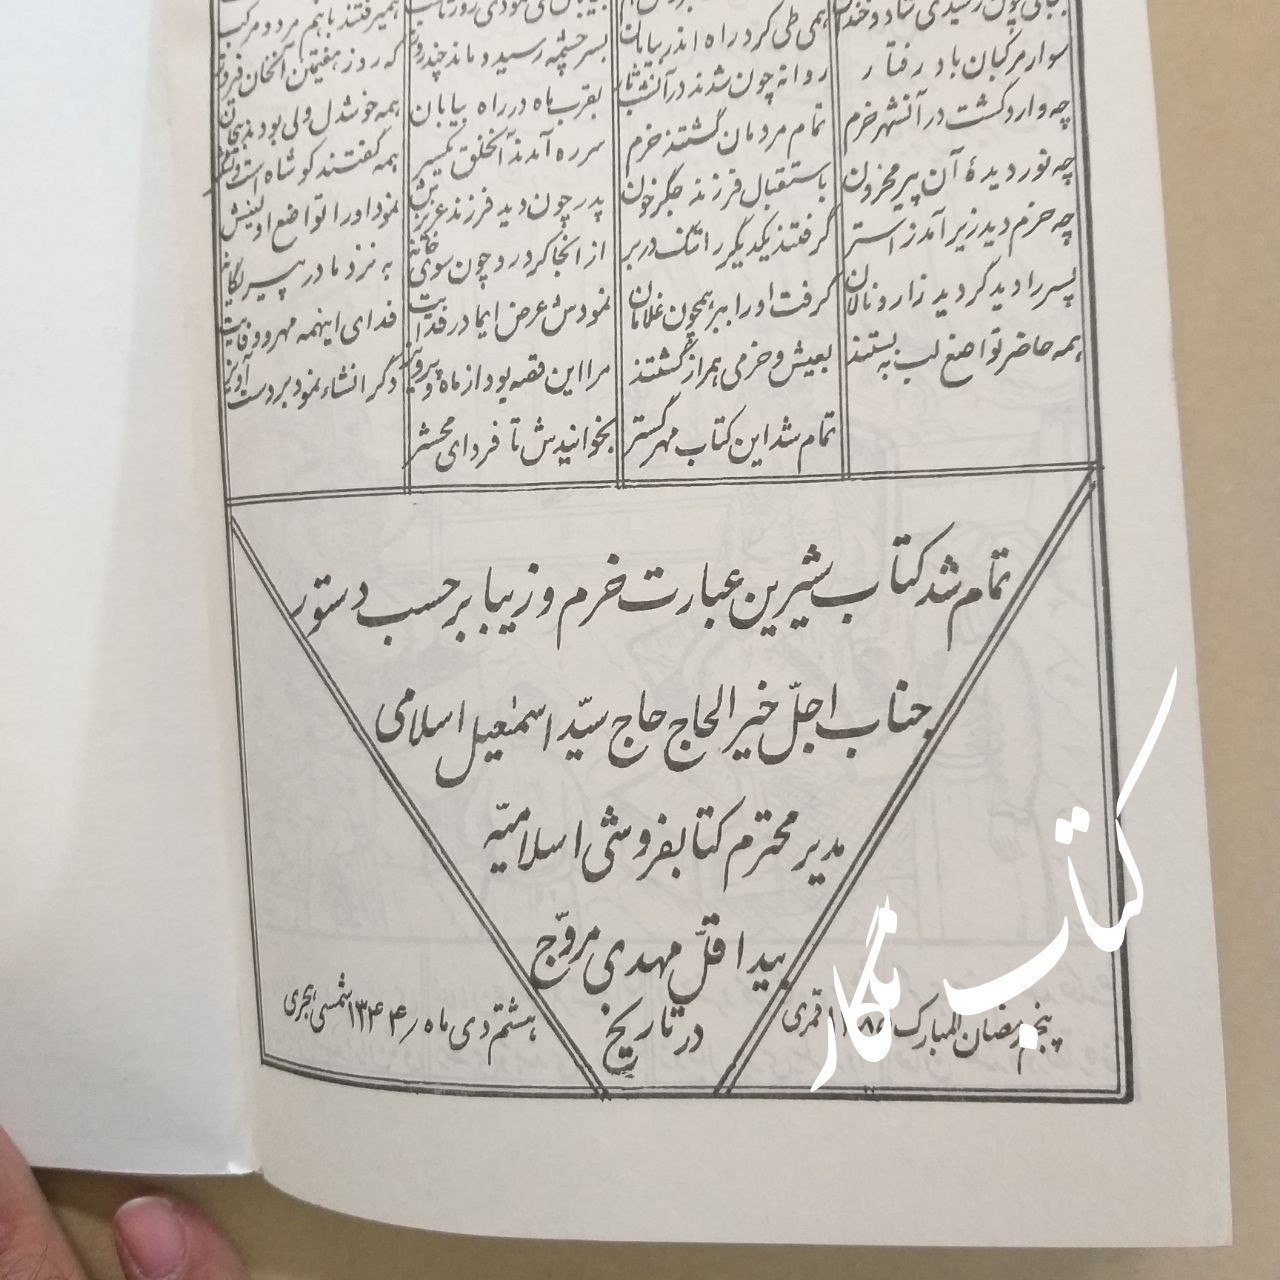 سوار مرکبان باد رفتار
همی طی کرد راه اندر بیابان
روانه چون شدند در آنشب تار
بسر چشمه رسید و ماند چند روز
که روز هفتمین آنخان فیروز
چه وارد گشت در آنشهر خرم
تمام مردمان گشتند خرم
بقرب ماه در راه بیابان
همه خوشدل ولی بود
چه نور دیدهٔ آن پیر محزون
باستقبال فرزند جگرخون
سر ره آمدند آنخلق یکسر
همه گفتند کو شاه است
چه خرم دید زیر آمد ز استر
گرفتند یکدیگر را تنگ در بر
پدر چون دید فرزند عزیزش
نمود او را تواضع او
پسر را دید گردید زار و نالان
گرفت او را ببر همچون غلامان
از آنجا کرد رو چون سوی خانه
به نزد مادر پیر یگانه
همه حاضر تواضع لب به بستند
بعیش و خرمی همراز گشتند
نمودش عرض ایمادر فدایت
فدای اینهمه مهر و وفایت
مرا این قصه بود از ماه و پیروز
دگر انشاء نمود بردست
تمام شد این کتاب مهر گستر
بخوانیدش تا فردای محشر
تمام شد کتاب شیرین عبارت خرم و زیبا بر حسب دستور
جناب اجلّ خیر الحاج حاج سیّد اسمٰعیل اسلامی
مدیر محترم کتابفروشی اسلامیّه
بید اقلّ مهدی مروّج
در تاریخ
پنجم رمضان المبارک قمری
هشتم دی ماه ۱۳۴۴ شمسی هجری
کتاب نگار